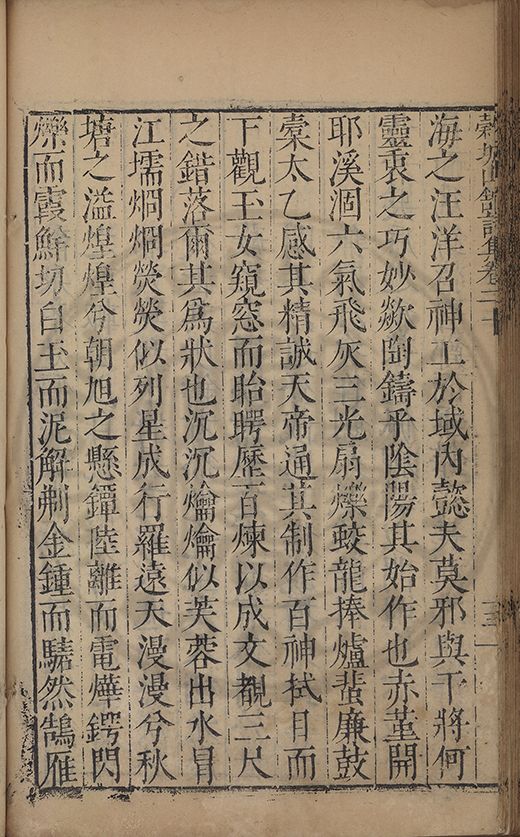 穀城山館詩集卷
海之汪洋召神工於域內懿夫莫邪與干將何
靈衷之巧妙欻陶鑄乎陰陽其始作也赤堇開
耶溪涸六氣飛灰三光扇爍蛟龍捧爐蜚廉鼓
橐太乙感其精誠天帝通其制作百神拭目而
下觀玉女窺窓而眙歷百煉以成文覩三尺
之錯落爾其為狀也沉沉爚爚似芙蓉出水冒
江壖烱烱熒熒似列星成行羅遠天漫漫兮秋
塘之溢煌煌兮朝旭之懸鐔陸離而電燁鍔閃
爍而霞鮮切白玉而泥解剸金鍾而騞然鵠雁